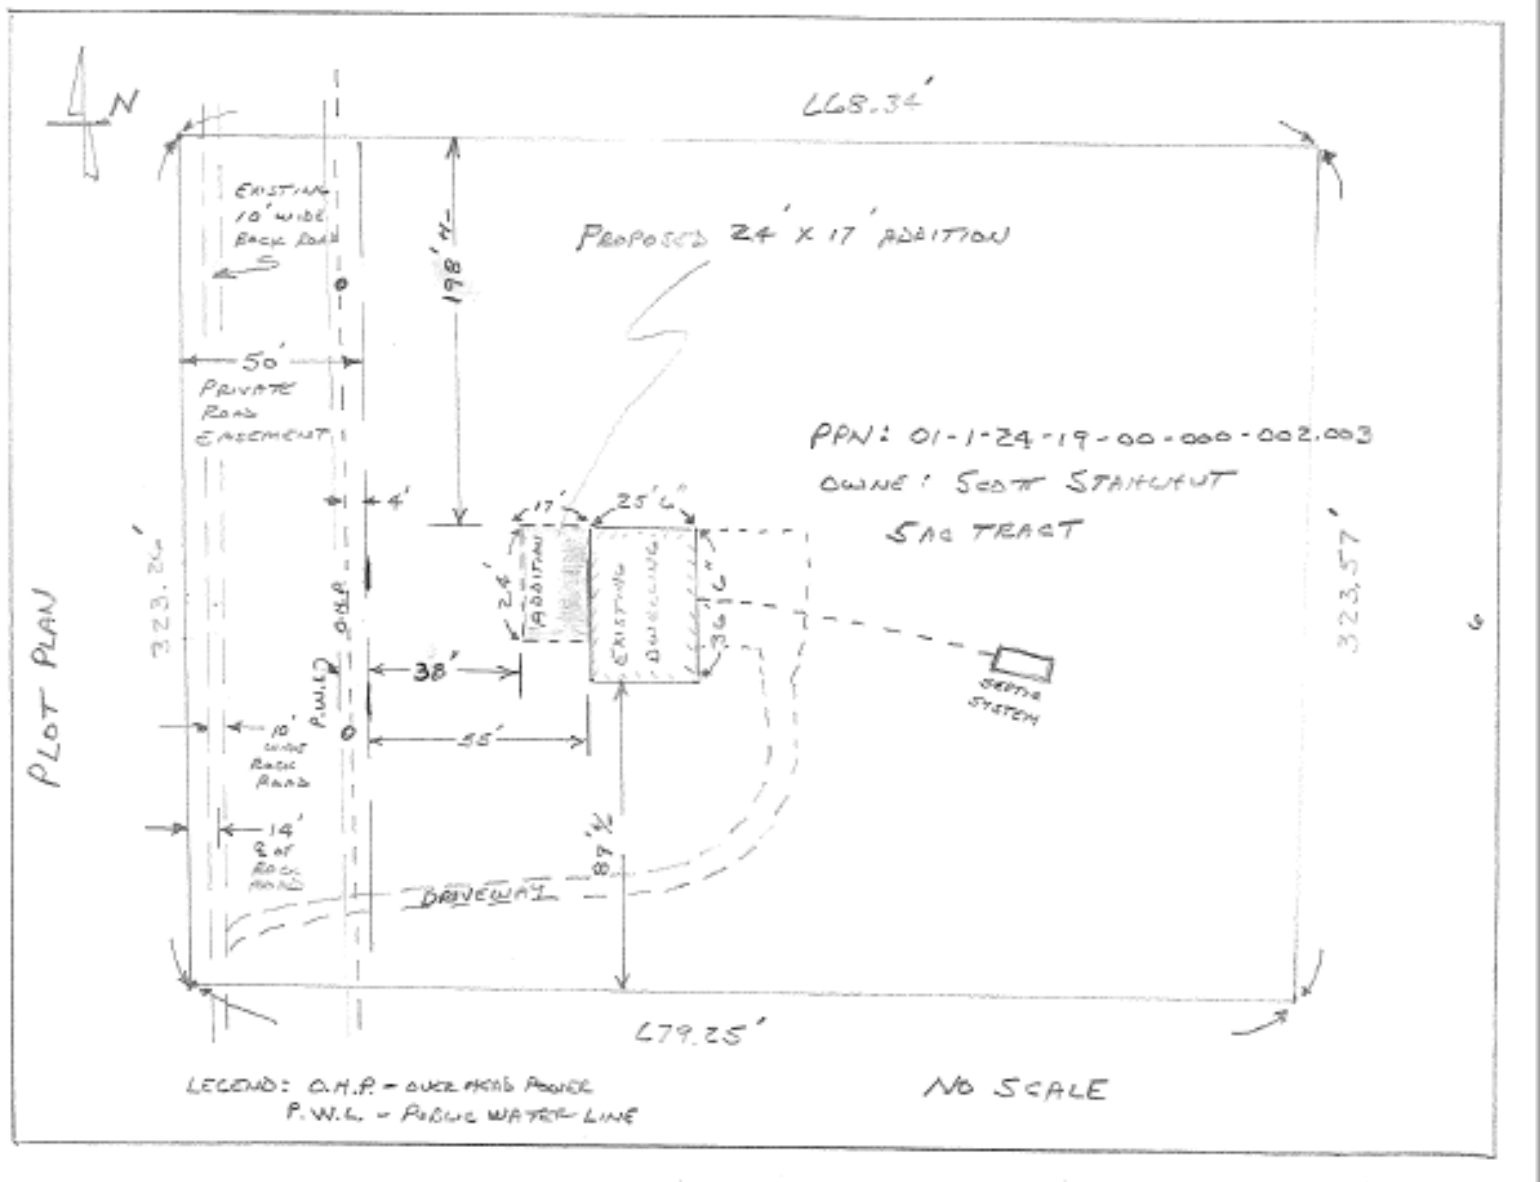 N
668.34'
EXISTING
10' WIDE
ROCK ROAD
198' +/-
PROPOSED 24' X 17' ADDITION
50'
PRIVATE
ROAD
EASEMENT
PPN: 01-1-24-19-00-000-002.003
OWNE: SCOTT
5 AC TRACT
4'
17'
25'6"
323.26'
24'
ADDITION
EXISTING
DWELLING
36'6"
323.57'
PLOT PLAN
O.H.P.
P.W.L.
38'
SEPTIC
SYSTEM
10'
WIDE
ROCK
ROAD
55'
14'
ROCK
ROAD
87' +/-
DRIVEWAY
679.25'
LEGEND: O.H.P. - OVER HEAD POWER
P.W.L. - PUBLIC WATER LINE
NO SCALE